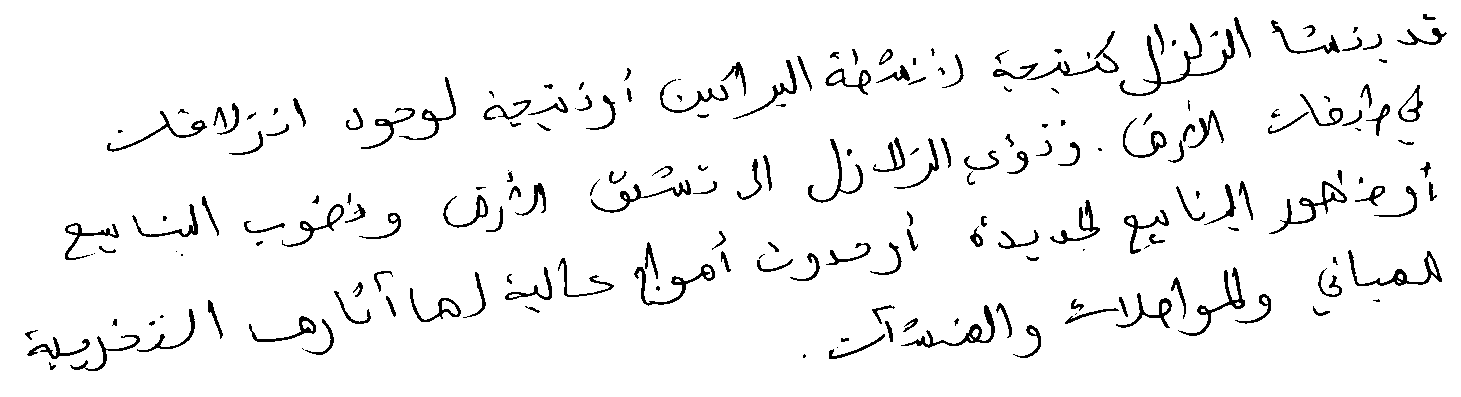 قد ينشأ الزلزال كنتيجة لأنشطة البراكين أو نتيجة لوجود انزلاقات
في طبقات الأرض. وتؤدي الزلازل الى تشقق الأرض ونضوب الينابيع
أو ظهور الينابيع الجديدة أو حدوث أمواج عالية لها آثارها التخريبية
للمباني والمواصلات والمنشآت.